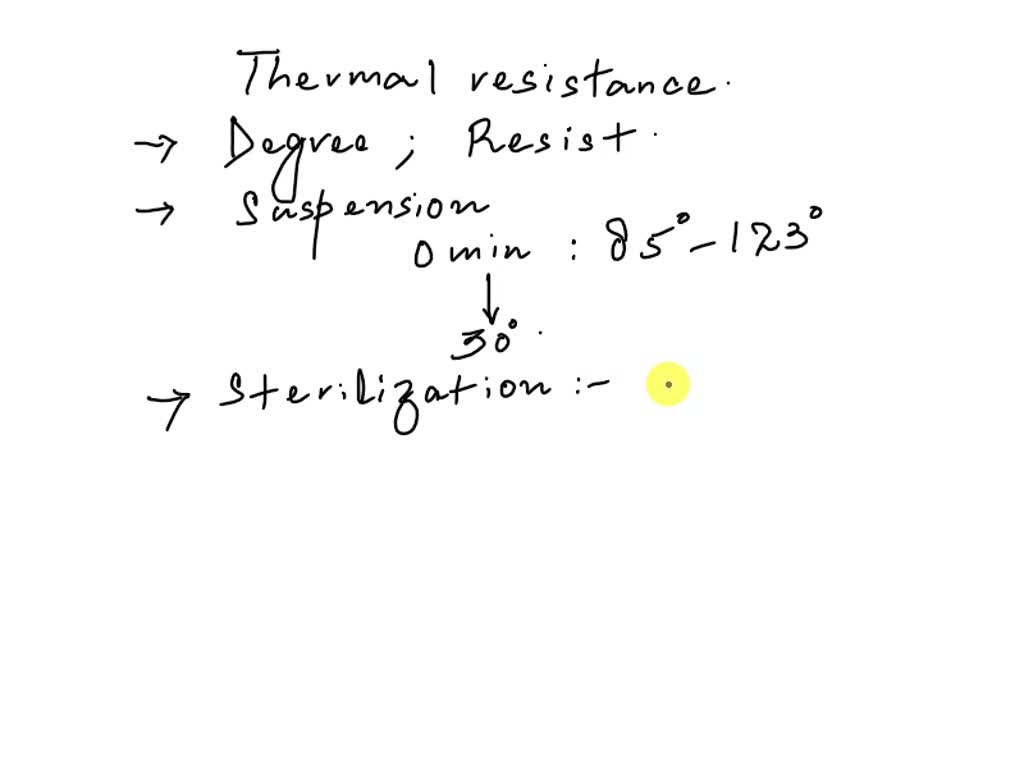 Thermal resistance.
→ Degree ; Resist.
→ Suspension
0 min : 85° - 123°
↓
30°.
→ Sterilization :-